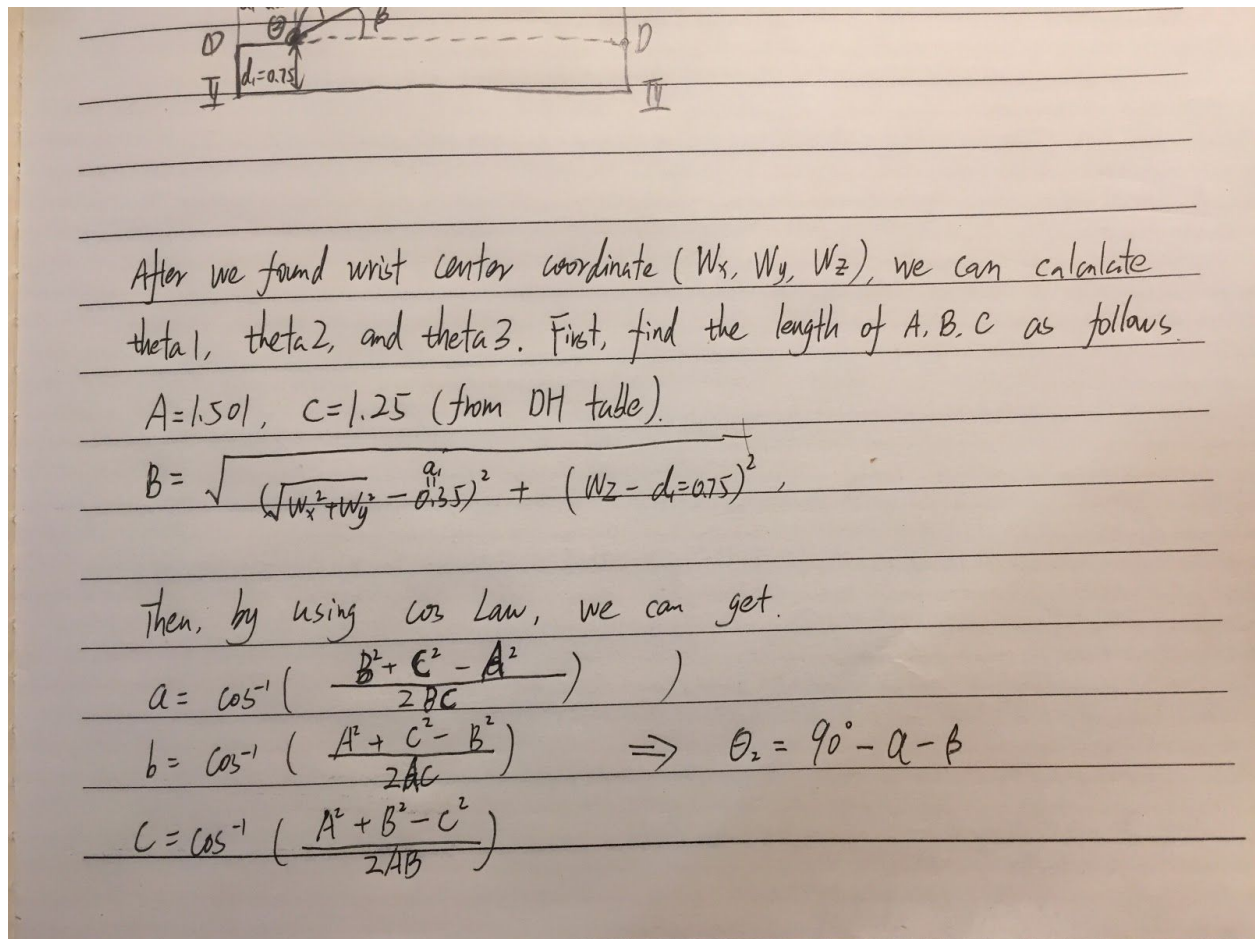 θ β
D
d₁=0.75
II IV
After we found wrist center coordinate (Wx, Wy, Wz), we can calculate
theta1, theta2, and theta3. First, find the length of A, B, C as follows.
A=1.501, C=1.25 (from DH table).
B= √((√(Wx²+Wy²) - a₁=0.35)² + (Wz - d₁=0.75)²),
Then, by using cos Law, we can get.
a= cos⁻¹ ( (B² + C² - A²) / 2BC ) )
b= cos⁻¹ ( (A² + C² - B²) / 2AC ) ⇒ θ₂ = 90° - a - β
C= cos⁻¹ ( (A² + B² - C²) / 2AB )